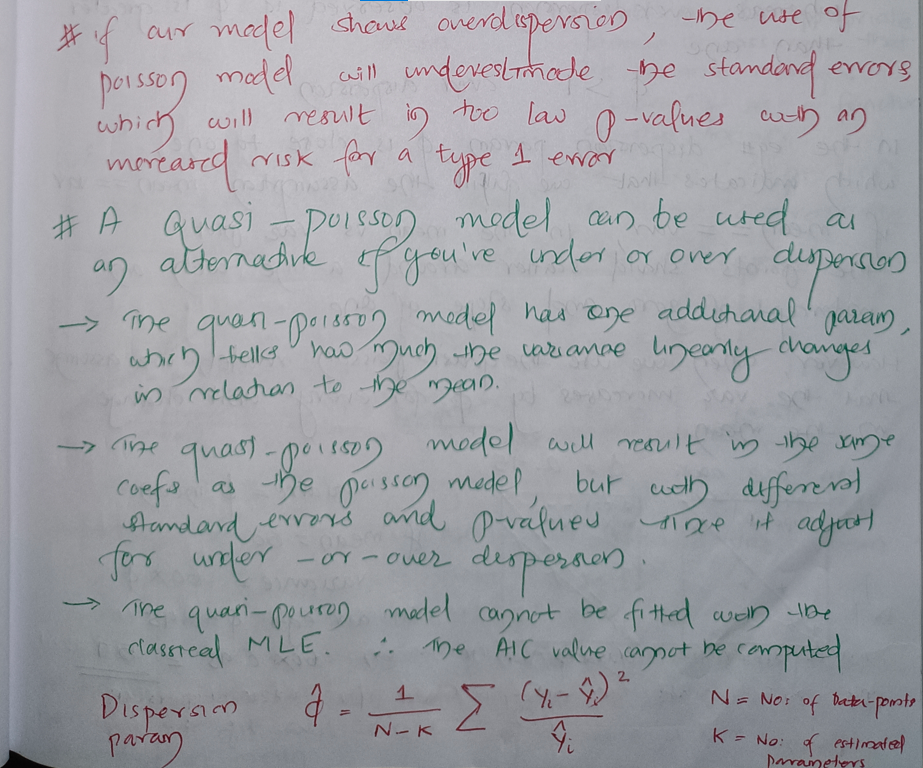 # if our model shows overdispersion, the use of
poisson model will underestimade the standard errors,
which will result in too low p-values with an
increased risk for a type 1 error
# A Quasi-poisson model can be used as
an alternative if you've under or over dispersion
→ The quasi-poisson model has one additional param,
which tells how much the variance linearly changes
in relation to the mean.
→ The quasi-poisson model will result in the same
coefs as the poisson model, but with different
standard errors and p-values since it adjust
for under-or-over dispersion.
→ The quasi-poisson model cannot be fitted with the
classical MLE. ∴ The AIC value cannot be computed
Dispersion param φ̂ = 1/(N-K) Σ (yᵢ - ŷᵢ)²/ŷᵢ
N = No: of Data-points
K = No: of estimated
parameters